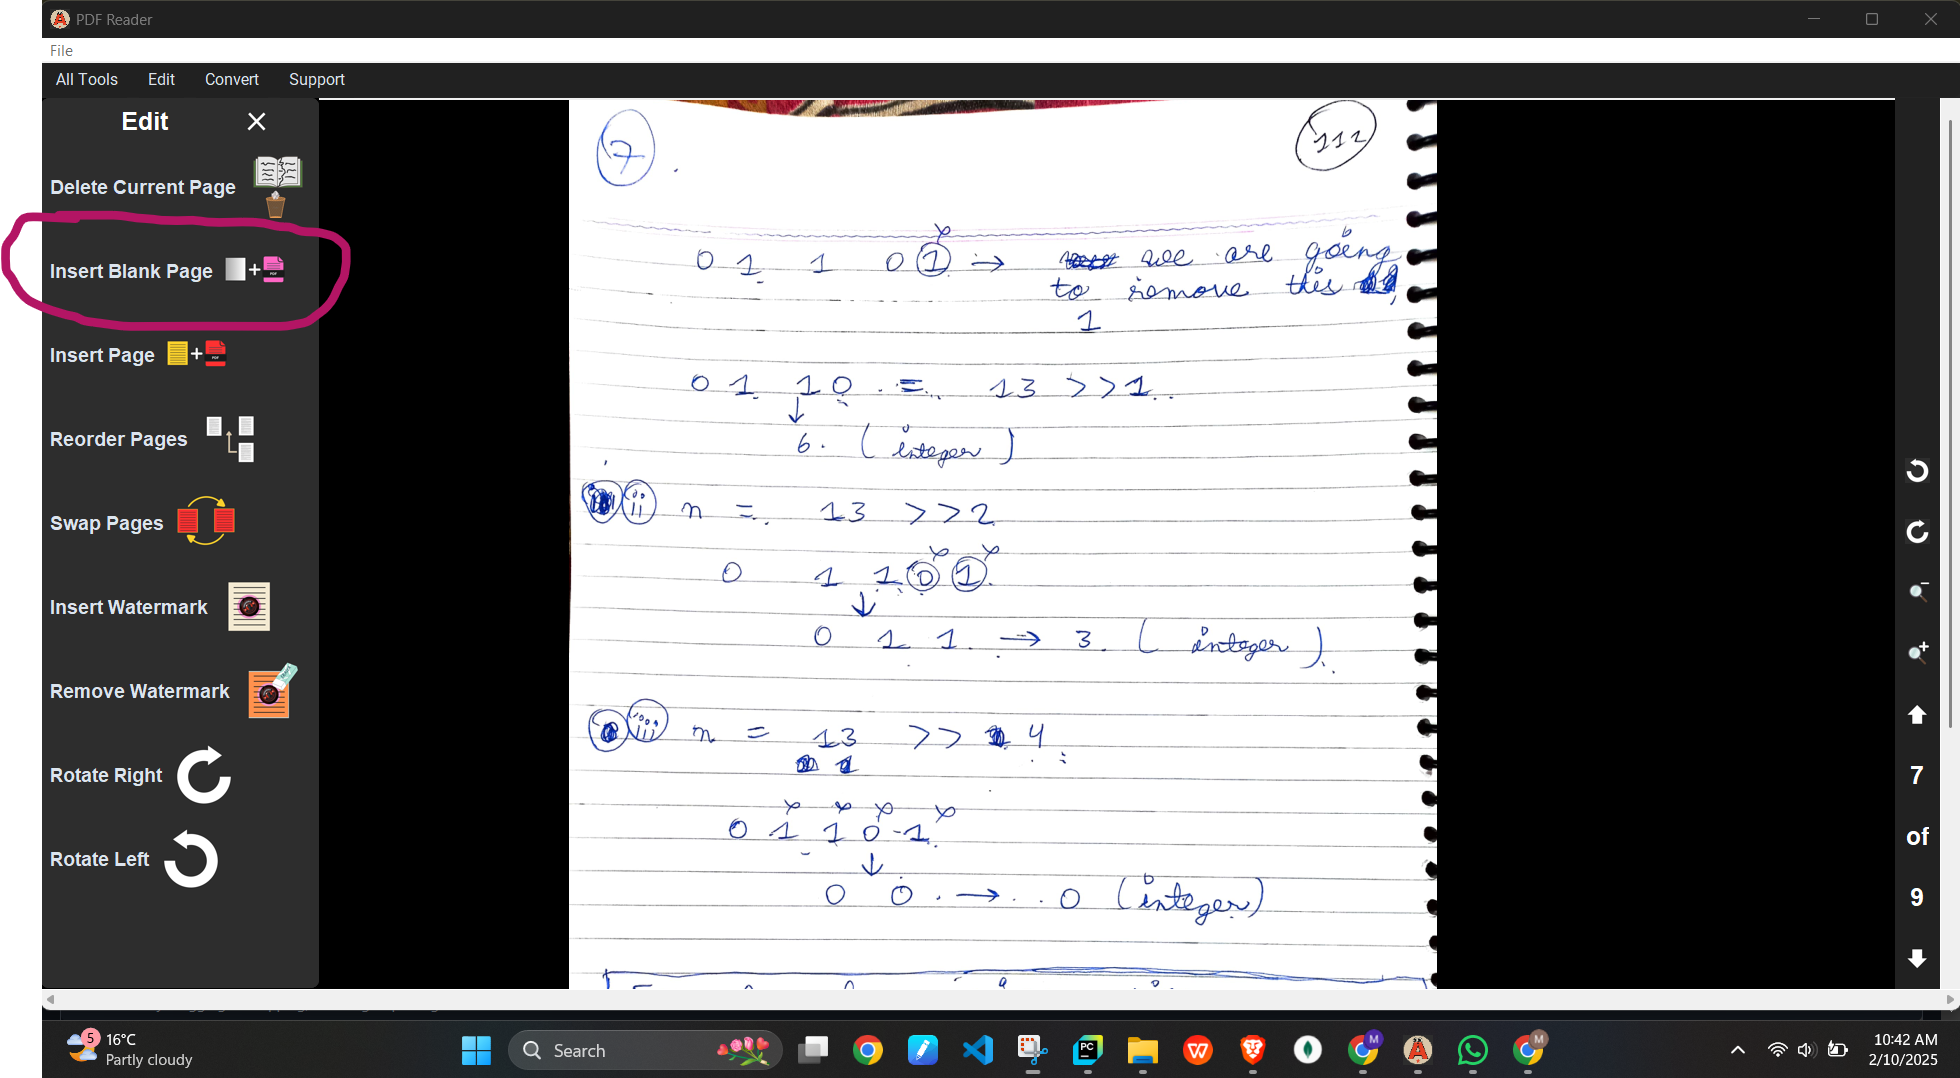 PDF Reader
File
All Tools Edit Convert Support
Edit
Delete Current Page
Insert Blank Page
PDF
Insert Page
PDF
Reorder Pages
Swap Pages
Insert Watermark
Remove Watermark
Rotate Right
Rotate Left
7 .
112
0 1 1 0 1 → we are going
to remove this
1
0 1 1 0 = 13 >>1
↓
6. (integer)
ii n = 13 >>2
0 1 1 0 1
↓
0 1 1 → 3. (integer)
iii n = 13 >> 4
0 1 1 0 1
↓
0 0 → 0 (integer)
7
of
9
5
16°C
Partly cloudy
Search
PC
W
M
M
10:42 AM
2/10/2025